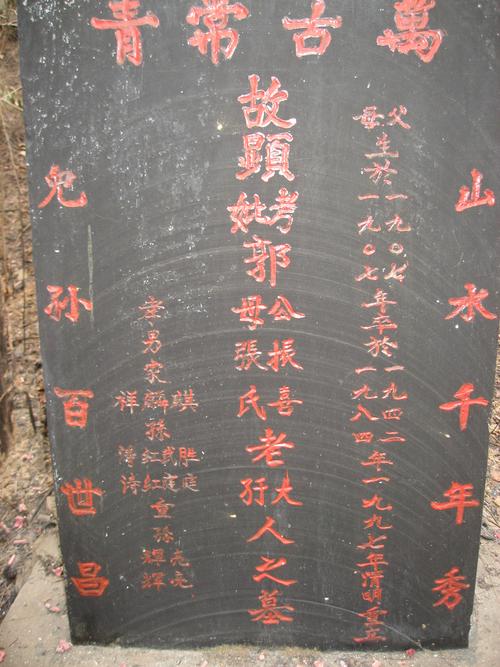 萬古常青
山水千年秀
父母生於一九〇七一九〇七年卒於一九四二一九八四年一九九七年清明重立
故顯考妣郭公母振張喜氏老大孺人之墓
孝男家麒麟孫
祥
紅紅
曾孫
輝輝亮亮
兒孫百世昌